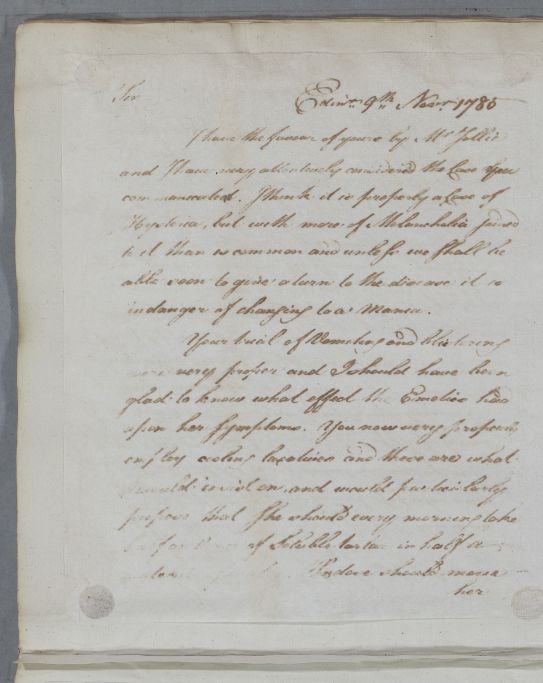 Sir
Edinr. 9th. Novr. 1785
I have the favour of yours by Mr
and I have very attentively considered the Case you
communicated. I think it is properly a Case of
Hysterica, but with more of Melancholia joined
to it than is common and unless we shall be
able soon to give a turn to the disease it is
in danger of changing to a Mania.
Your trial of Vomiting and blistering
were very proper and I should have been
glad to know what effect the Emetics had
upon her Symptoms. You now very properly
employ cooling laxatives and these are what
I would insist on, and would particularly
propose that She should every morning take
of Soluble tartar in half a
dose should
her